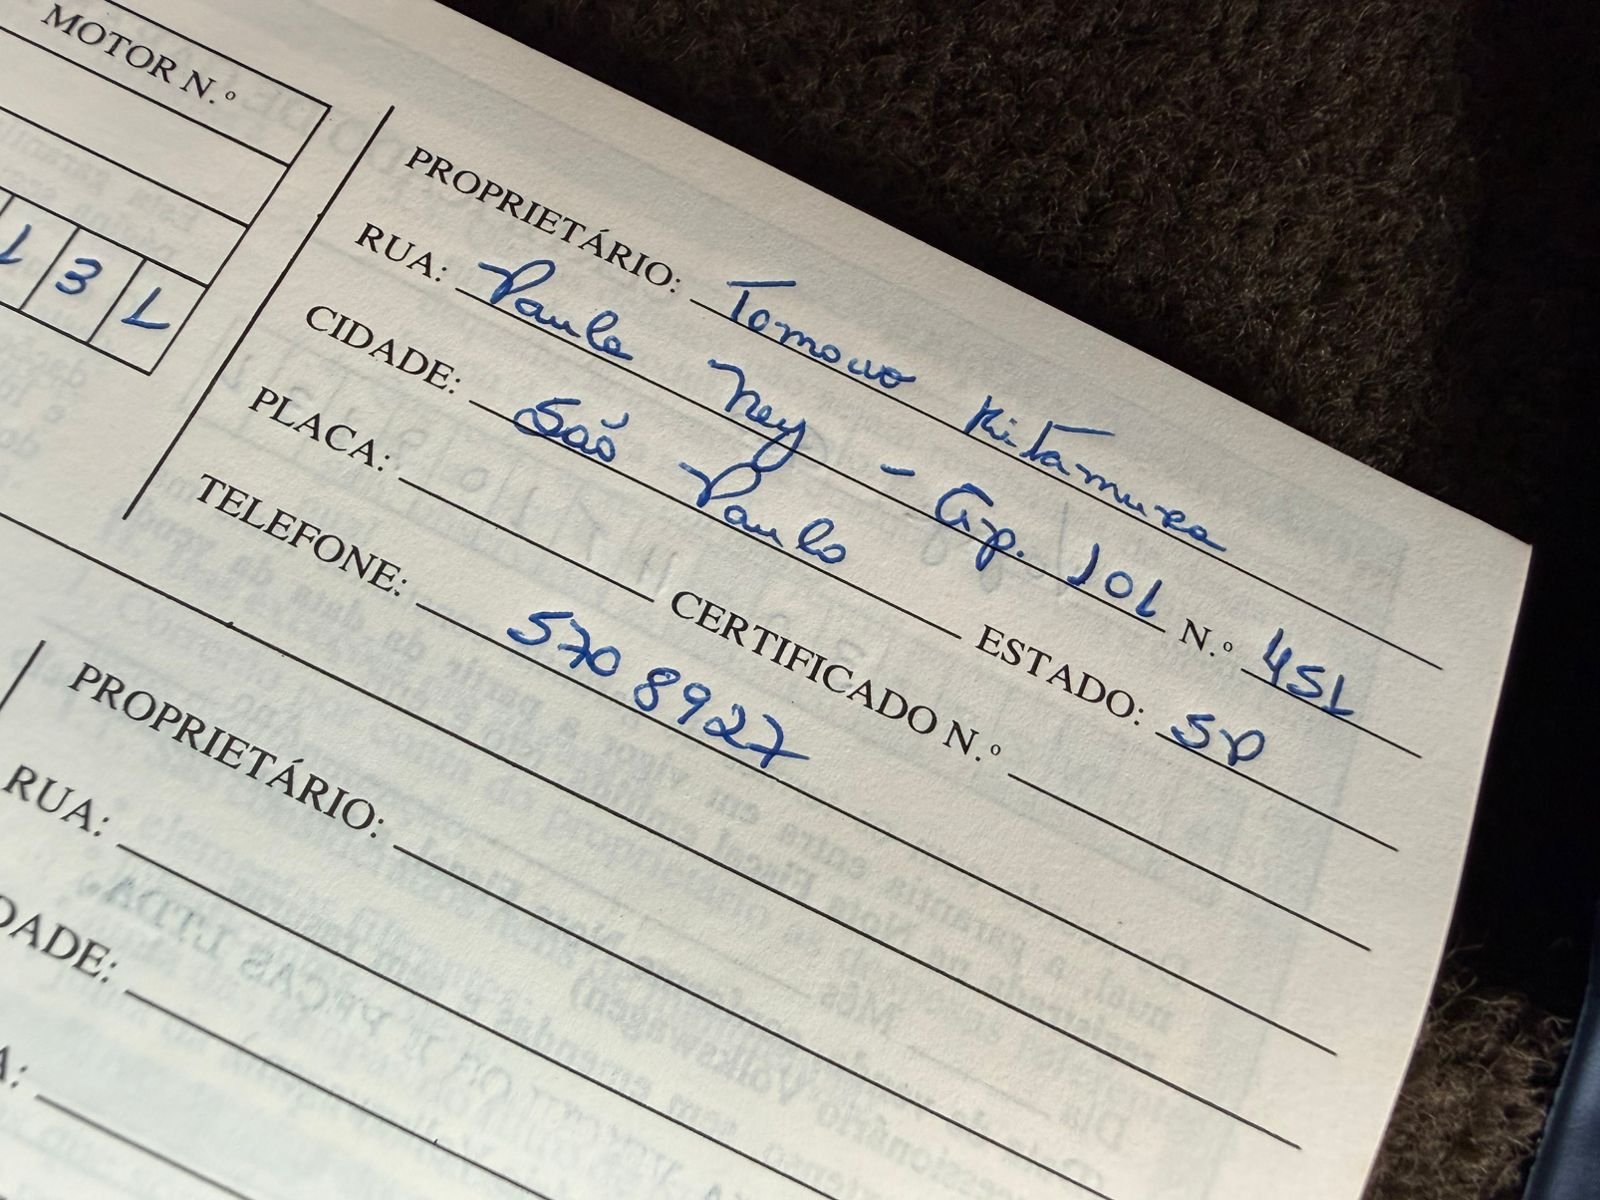 MOTOR N.º
1 3 1
PROPRIETÁRIO: Tomouo Kitamura
RUA: Paula Ney - Ap. 101 N.º 451
CIDADE: São Paulo ESTADO: SP
PLACA: CERTIFICADO N.º
TELEFONE: 570 8927
PROPRIETÁRIO:
RUA:
DADE:
A: